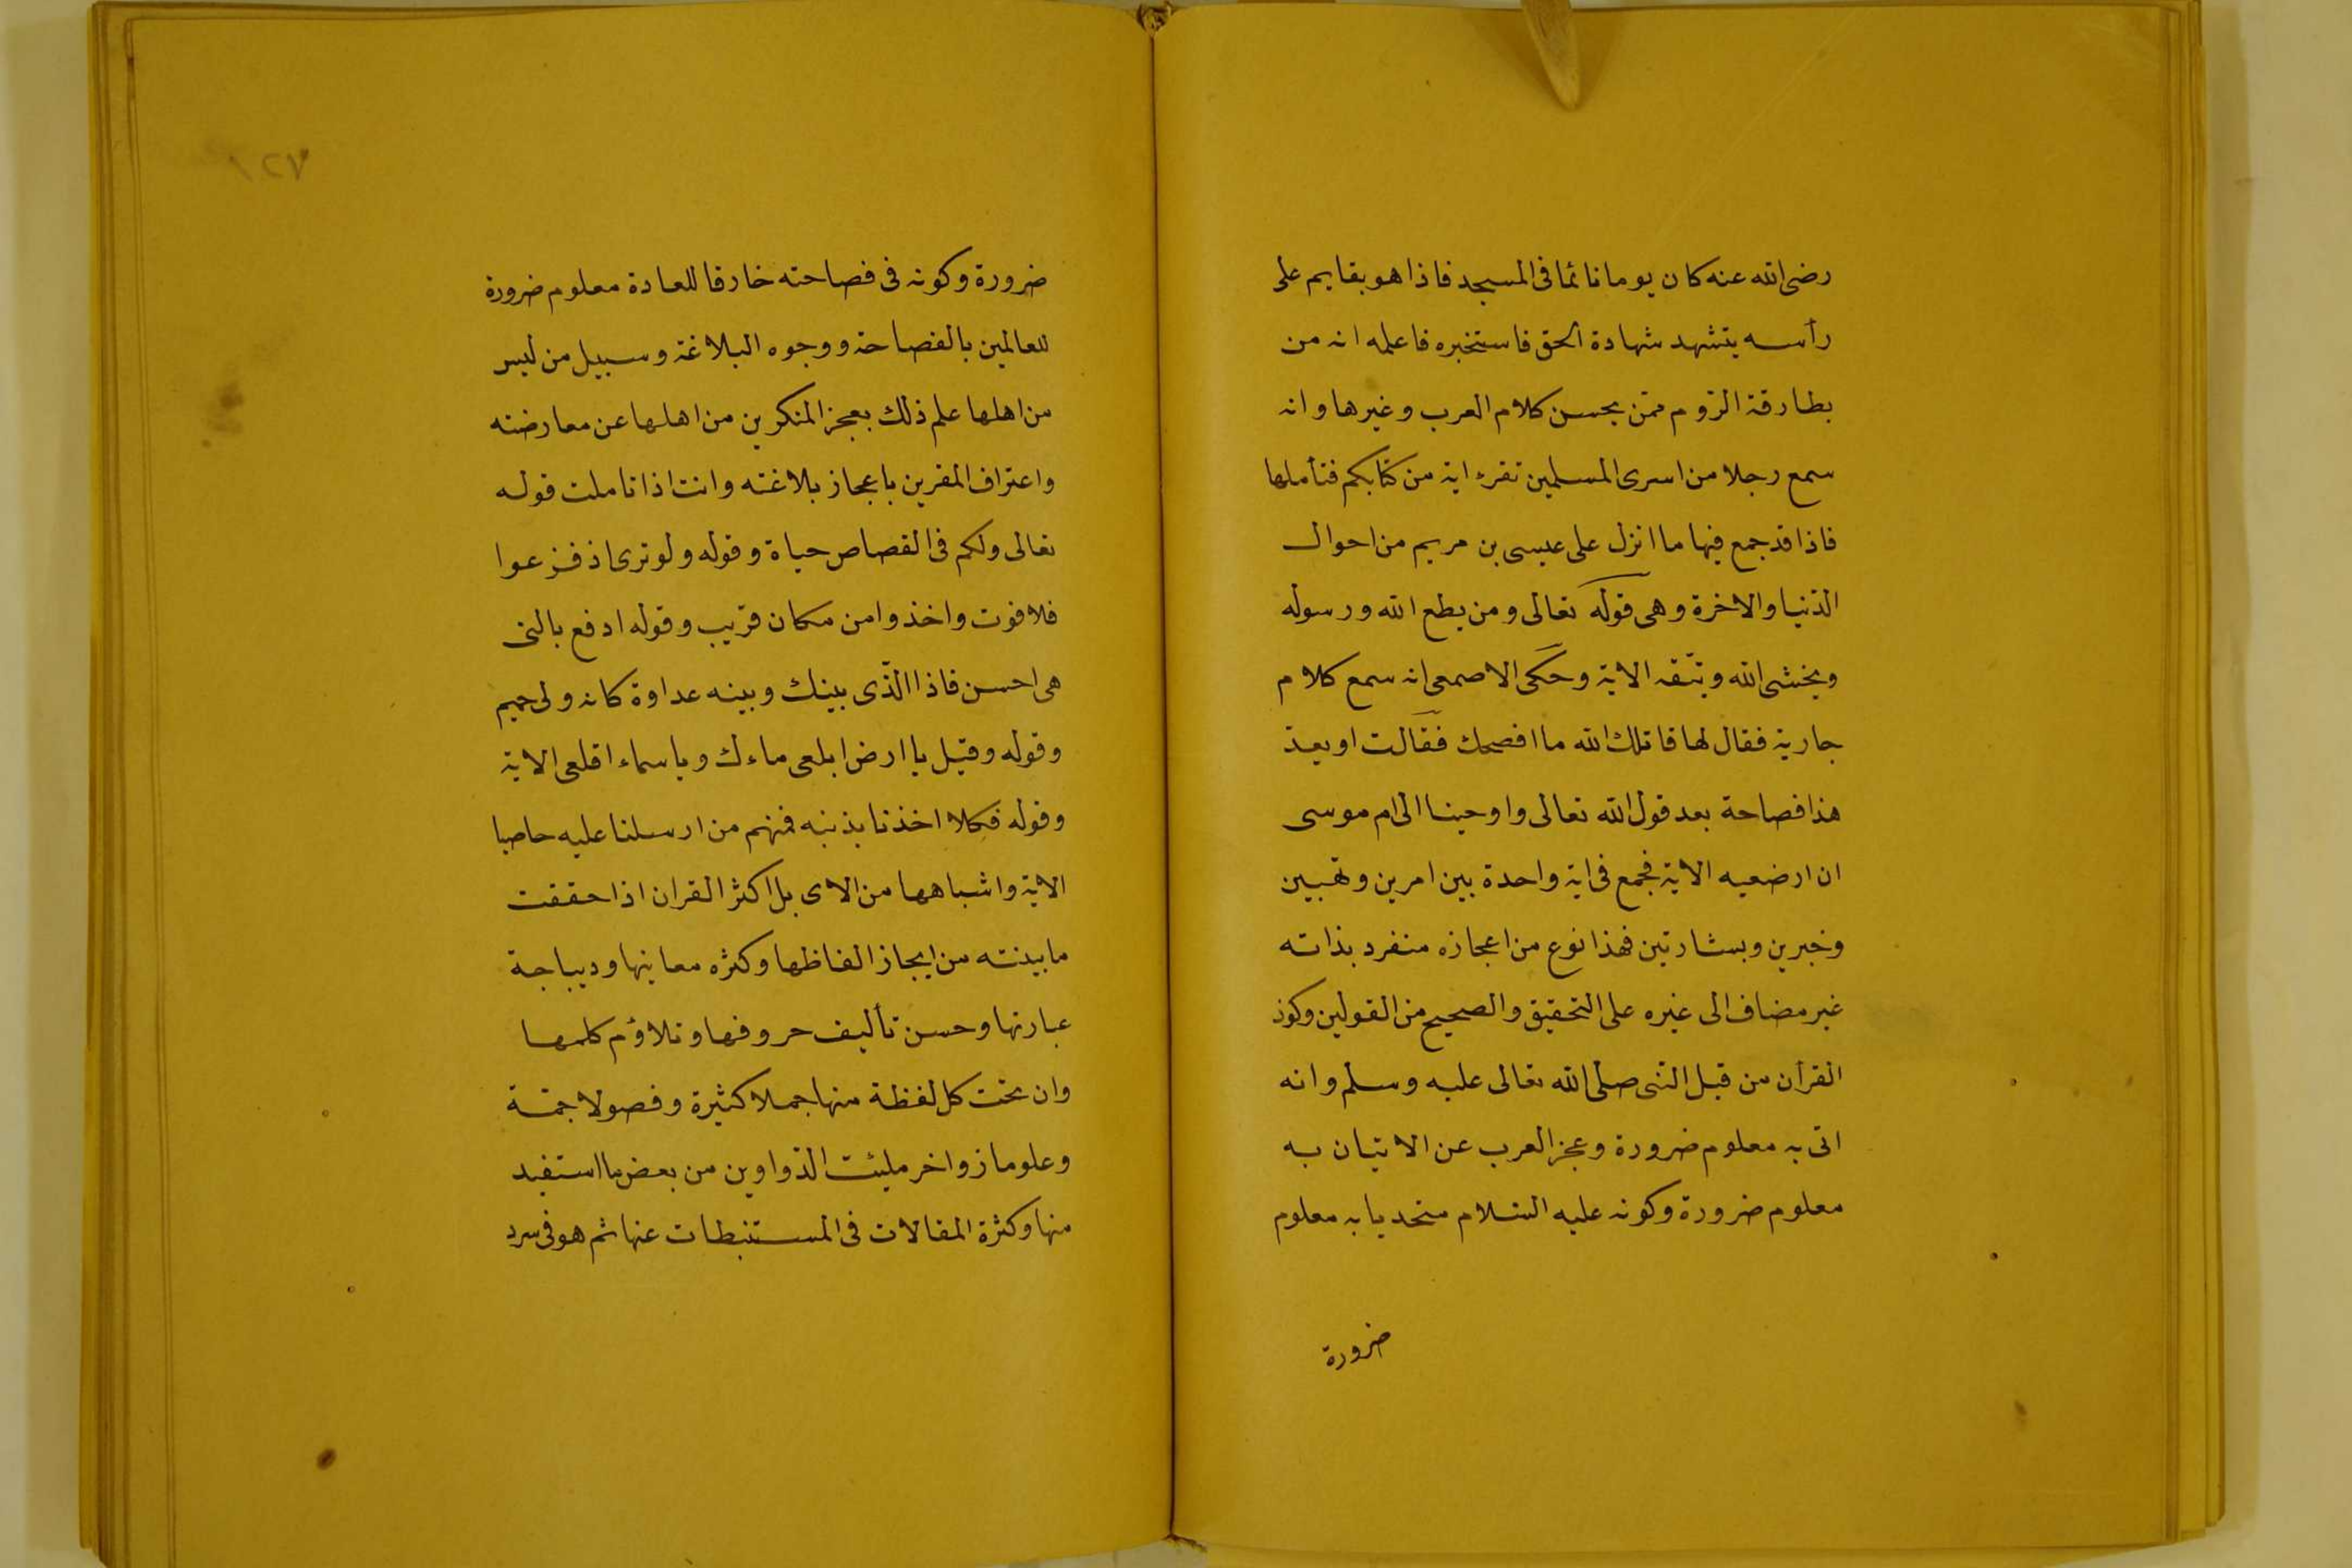 رضی الله عنه كان يوما نائما فى المسجد فاذا هو بقايم على
رأسه يتشهد شهادة الحق فاستخبره فاعلمه انه من
بطارقة الرّوم ممّن يحسن كلام العرب وغيرها وانه
سمع رجلا من اسرى المسلمين تقرء اية من كتابكم فتأملها
فاذا قد جمع فيها ما انزل على عيسى بن مريم من احوال
الدّنيا والاخرة وهى قوله تعالى ومن يطع الله ورسوله
ويخشى الله ويتّقه الاية وحكى الاصمعى انه سمع كلام
جارية فقال لها قاتلك الله ما افصحك فقالت او يعدّ
هذا فصاحة بعد قول الله تعالى واوحينا الى ام موسى
ان ارضعيه الاية فجمع فى اية واحدة بين امرين ونهيين
وخبرين وبشارتين فهذا نوع من اعجازه منفرد بذاته
غير مضاف الى غيره على التحقيق والصحيح من القولين وكون
القرأن من قبل النّبى صلى الله تعالى عليه وسلم وانه
اتى به معلوم ضرورة وعجز العرب عن الاتيان به
معلوم ضرورة وكونه عليه السّلام متحديا به معلوم
ضرورة
١٢٧
ضرورة وكونه فى فصاحته خارقا للعادة معلوم ضرورة
للعالمين بالفصاحة ووجوه البلاغة وسبيل من ليس
من اهلها علم ذلك بعجز المنكرين من اهلها عن معارضته
واعتراف المقرين باعجاز بلاغته وانت اذا تاملت قوله
تعالى ولكم فى القصاص حياة وقوله ولو ترى اذ فزعوا
فلا فوت واخذوا من مكان قريب وقوله ادفع بالتى
هى احسن فاذا الّذى بينك وبينه عداوة كانه ولى حميم
وقوله وقيل يا ارض ابلعى ماءك ويا سماء اقلعى الاية
وقوله فكلا اخذنا بذنبه فمنهم من ارسلنا عليه حاصبا
الاية واشباهها من الاى بل اكثر القران اذا حققت
ما بينته من ايجاز الفاظها وكثره معانيها وديباجة
عبارتها وحسن تأليف حروفها وتلاؤم كلمها
وان تحت كل لفظة منها جملا كثيرة وفصولا جمّة
وعلوما زواخر مليئت الدّواوين من بعض ما استفيد
منها وكثرة المقالات فى المستنبطات عنها ثم هو فى سرد